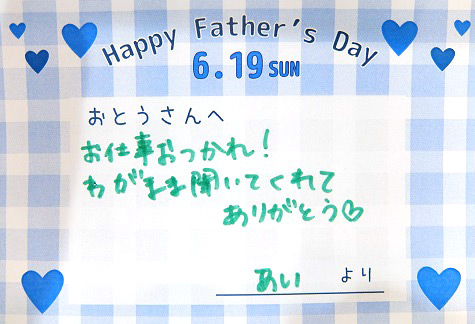 Happy Father's Day
6.19 SUN
おとうさんへ
お仕事おつかれ!
わがまま聞いてくれて
ありがとう♡
あい より